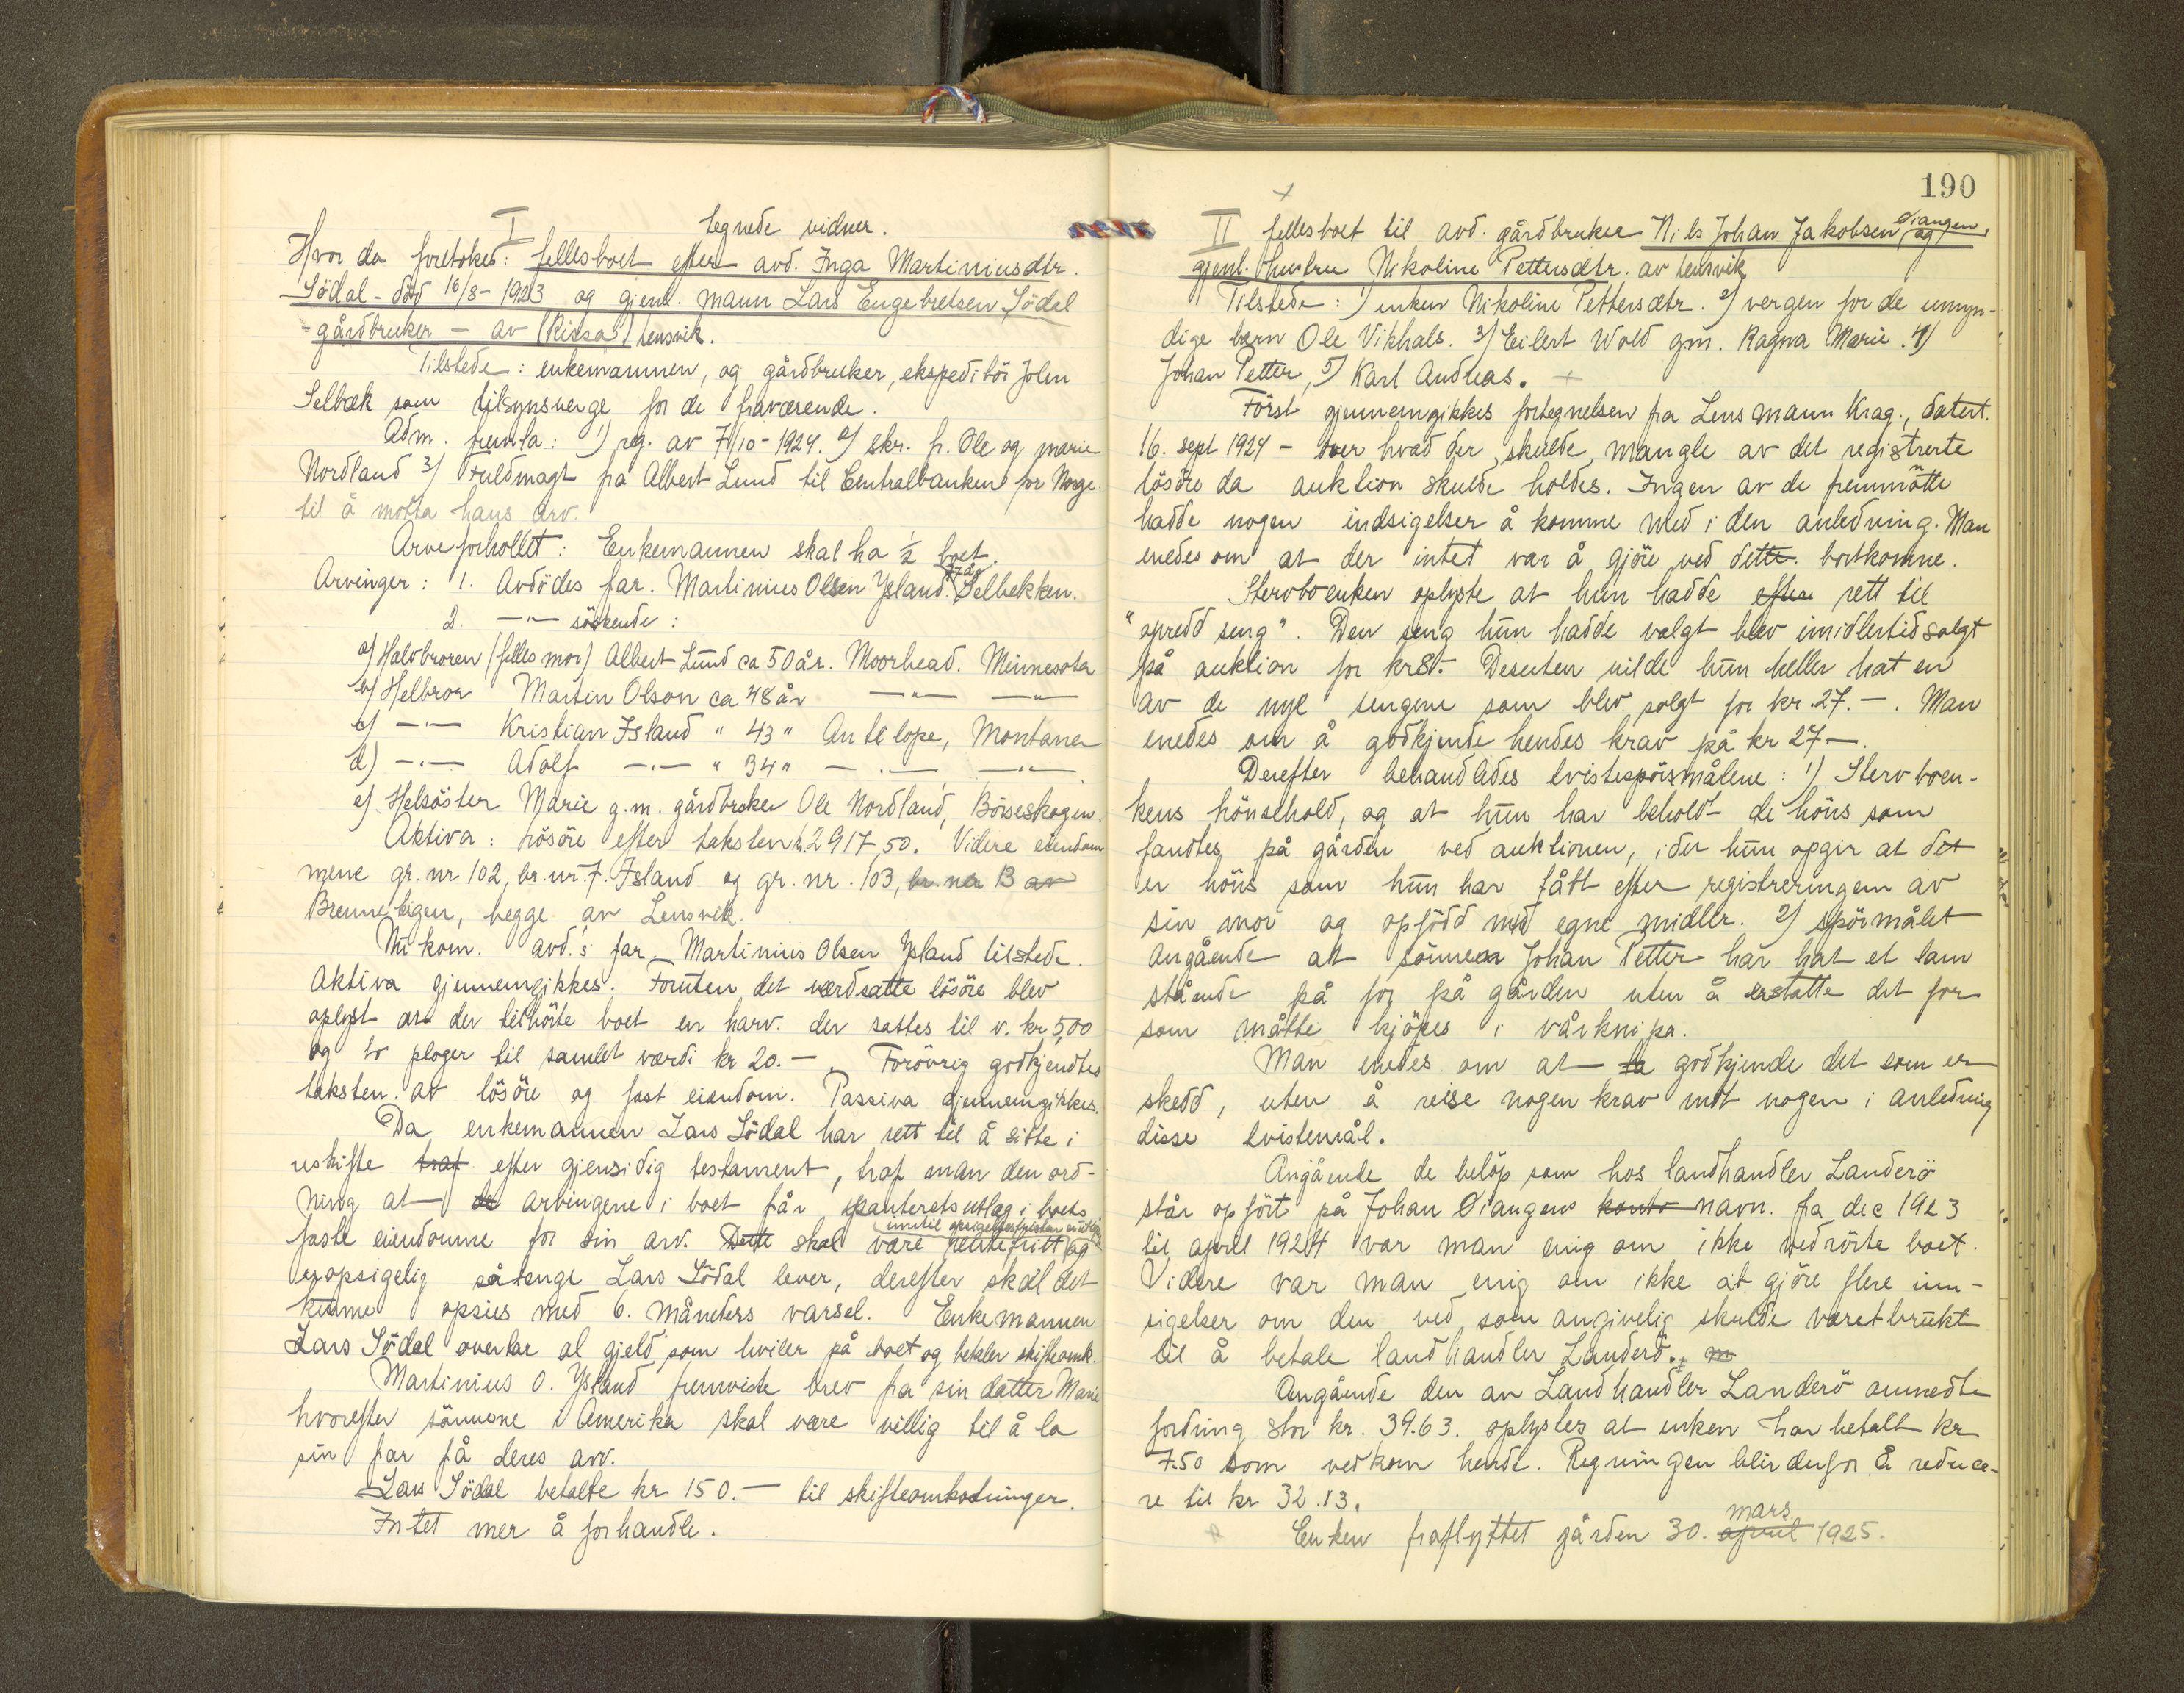 tegnede vidner.
I
Hvor da foretokes: fellesboet efter avd. Inga Martiniusdtr.
Södal - död 16/8 - 1923 og gjenl. mann Lars Engebretsen Södal
- gårdbruker - av (Rissa) Lensvik.
Tilstede: enkemannen, og gårdbruker, ekspeditör John
Selbæk som tilsynsverge for de fraværende.
Adm. fremla: 1) reg. av 7/10 - 1924. 2) skr. fr. Ole og Marie
Nordland 3) Fuldmagt fra Albert Lund til Centralbanken for Norge
til å motta hans arv.
Arveforhollet: Enkemannen skal ha 1/2 boet.
Arvinger: 1. Avdödes far. Martinius Olsen Ysland. Selbekken.
2. -"- söskende:
a) Halvbroren (felles mor) Albert Lund ca 50 år. Moorhead. Minnesota
b) Helbror Martin Olson ca 48 år -"- -"-
c) -"- Kristian Island " 43 " Antelope, Montana
d) -"- Adolf -"- " 34 " -"- -"-
e) Helsöster Marie g.m. gårdbruker Ole Nordland, Börseskogen.
Aktiva: lösöre efter taksten kr. 2917,50. Videre eiendom
mene gr. nr 102, br. nr. 7. Island og gr. nr. 103, br. nr 13 av
Brenneteigen, begge av Lensvik.
Nu kom. avd.'s far, Martinius Olsen Ysland tilstede.
Aktiva gjennemgikkes. Foruten det værdsatte lösöre blev
oplyst at der tilhörte boet en harv. der sattes til v. kr 5,00
og to ploger til samlet værdi kr 20.- Forövrig godkjendtes
taksten. av lösöre og fast eiendom. Passiva gjennemgikkes.
Da enkemannen Lars Södal har rett til å sitte i
uskifte traf efter gjensidig testament, traf man den ord-
ning at de arvingene i boet får panteretsutlag i boets
inntil opsigelsesfristen er utløp
faste eiendomme for sin arv. Dette skal være rentefritt og
uopsigelig sålenge Lars Södal lever, derefter skal det
kunne opsies med 6. måneders varsel. Enkemannen
Lars Södal overtar al gjeld som hviler på boet og betaler skifteomk.
Martinius O. Ysland fremviste brev fra sin datter Marie
hvorefter sönnene i Amerika skal være villig til å la
sin far få deres arv.
Lars Södal betalte kr 150.- til skifteomkostninger.
Intet mer å forhandle.
190
II fellesboet til avd. gårdbruker Nils Johan Jakobsen Öiangen, og
gjenl. hustru Nikoline Pettersdtr. av Lensvik
Tilstede: 1) enken Nikoline Pettersdtr. 2) vergen for de umyn-
dige barn Ole Vikhals. 3) Eilert Wold gm. Ragna Marie. 4)
Johan Petter, 5) Karl Andreas.
Först gjennemgikkes fortegnelsen fra Lensmann Krag., datert.
16. sept 1924 - over hvad der skulde mangle av det registrerte
lösöre da auktion skulde holdes. Ingen av de fremmötte
hadde nogen indsigelser å komme med i den anledning. Man
enedes om at der intet var å gjöre ved dette bortkomne.
Stervboenken oplyste at hun hadde efter rett til
"opredd seng". Den seng hun hadde valgt blev imidlertid solgt
på auktion for kr 8.- Desuten vilde hun heller hat en
av de nye sengene som blev solgt for kr. 27.-. Man
enedes om å godkjende hendes krav på kr 27-.
Derefter behandledes tvistespörsmålene: 1) Stervboen-
kens hönsehold, og at hun har beholdt de höns som
fandtes på gården ved auktionen, ider hun opgir at det
er höns som hun har fått efter registreringen av
sin mor og opfödd med egne midler. 2) spörmålet
angående at sönnen Johan Petter har hat et lam
stående på for på gården uten å erstatte det for
som måtte kjöpes i vårknipa.
Man enedes om at ta godkjende det som er
skedd, uten å reise nogen krav mot nogen i anledning
disse tvistemål.
Angående de belöp som hos landhandler Landerö
står opfört på Johan Öiangens konto navn. fra dec 1923
til april 1924 var man enig om ikke vedrörte boet.
Videre var man enig om ikke at gjöre flere inn-
sigelser om den ved som angivelig skulde været brukt
til å betale landhandler Landerö.
Angående den av Landhandler Landerö anmedte
fordring stor kr. 39.63. oplystes at enken har betalt kr
7.50 som vedkom hende. Regningen blir derfor å reduce-
re til kr 32.13.
Enken fraflyttet gården 30. april mars 1925.